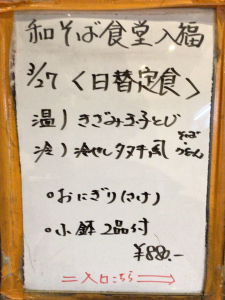 和そば食堂入福
3/27 〈日替定食〉
温) きざみ玉子とじ
冷) 冷やしタヌキ風 そば・うどん
・おにぎり(さけ)
・小鉢2品付
¥880.-
入口こちら→